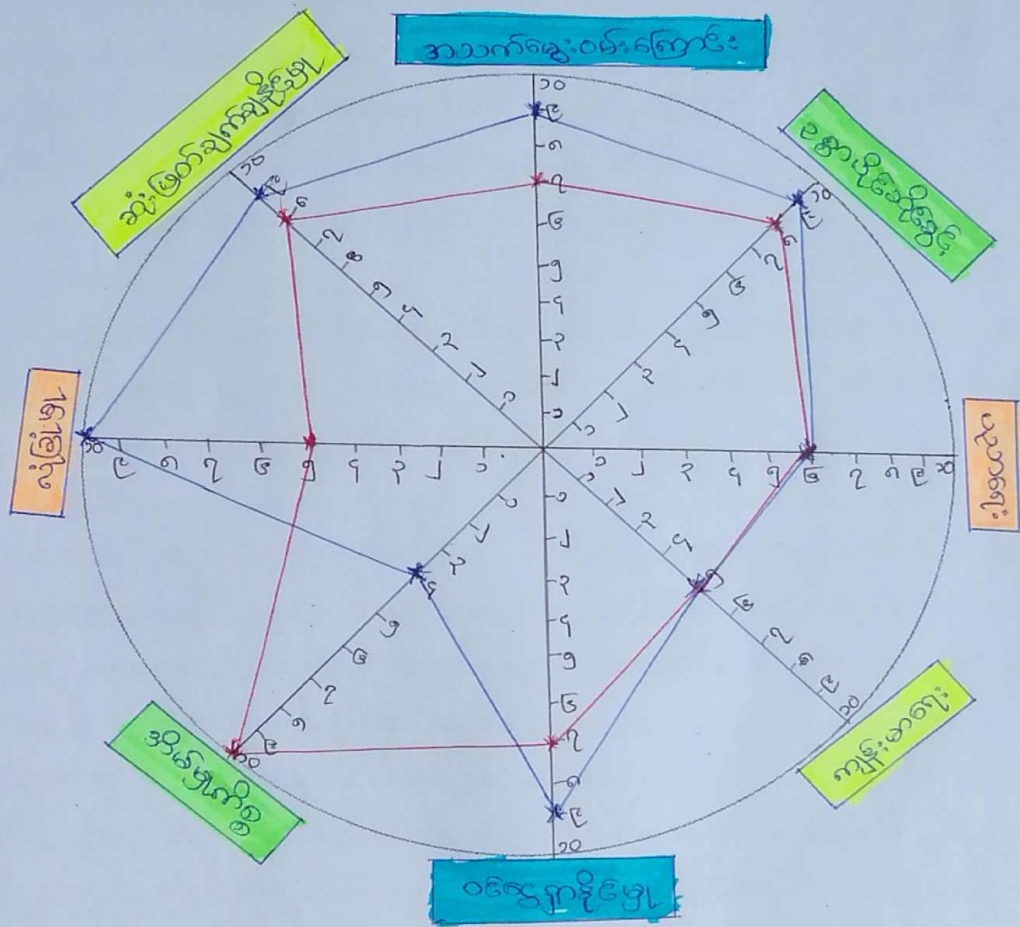 အသက်မွေးဝမ်းကြောင်း
ဆုံးဖြတ်ချက်ချနိုင်မှု
ပညာရေး
ကျန်းမာရေး
ဝင်ငွေရှာနိုင်မှု
အိမ်မှုကိစ္စ
၁ ၂ ၃ ၄ ၅ ၆ ၇ ၈ ၉ ၁၀
၁ ၂ ၃ ၄ ၅ ၆ ၇ ၈ ၉ ၁၀
၁ ၂ ၃ ၄ ၅ ၆ ၇ ၈ ၉ ၁၀
၁ ၂ ၃ ၄ ၅ ၆ ၇ ၈ ၉ ၁၀
၁ ၂ ၃ ၄ ၅ ၆ ၇ ၈ ၉ ၁၀
၁ ၂ ၃ ၄ ၅ ၆ ၇ ၈ ၉ ၁၀
၁ ၂ ၃ ၄ ၅ ၆ ၇ ၈ ၉ ၁၀
၁ ၂ ၃ ၄ ၅ ၆ ၇ ၈ ၉ ၁၀